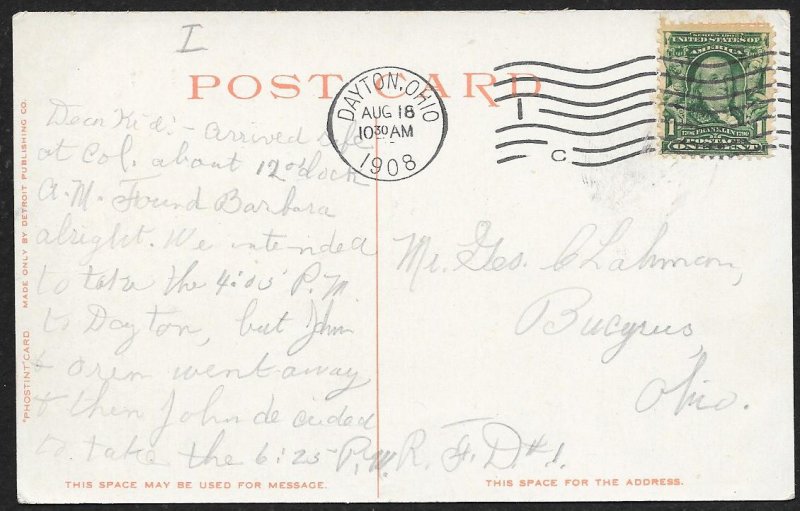 I
POST CARD
DAYTON, OHIO
AUG 18
10 30 AM
1908
1
C
SERIES 1902
UNITED STATES OF
AMERICA
1706 FRANKLIN 1790
1 1
POSTAGE
ONE CENT
Dear Kid:- arrived safe
at Col. about 12 o'clock
A.M. Found Barbara
alright. We intended
to take the 4:05 P.M
to Dayton, but John
& Oren went away
& then John de cided
to take the 6:25 P.M.
Mr. Geo. C Lahman,
Bucyrus,
Ohio.
R. F. D #1.
"PHOSTINT" CARD MADE ONLY BY DETROIT PUBLISHING CO.
THIS SPACE MAY BE USED FOR MESSAGE.
THIS SPACE FOR THE ADDRESS.